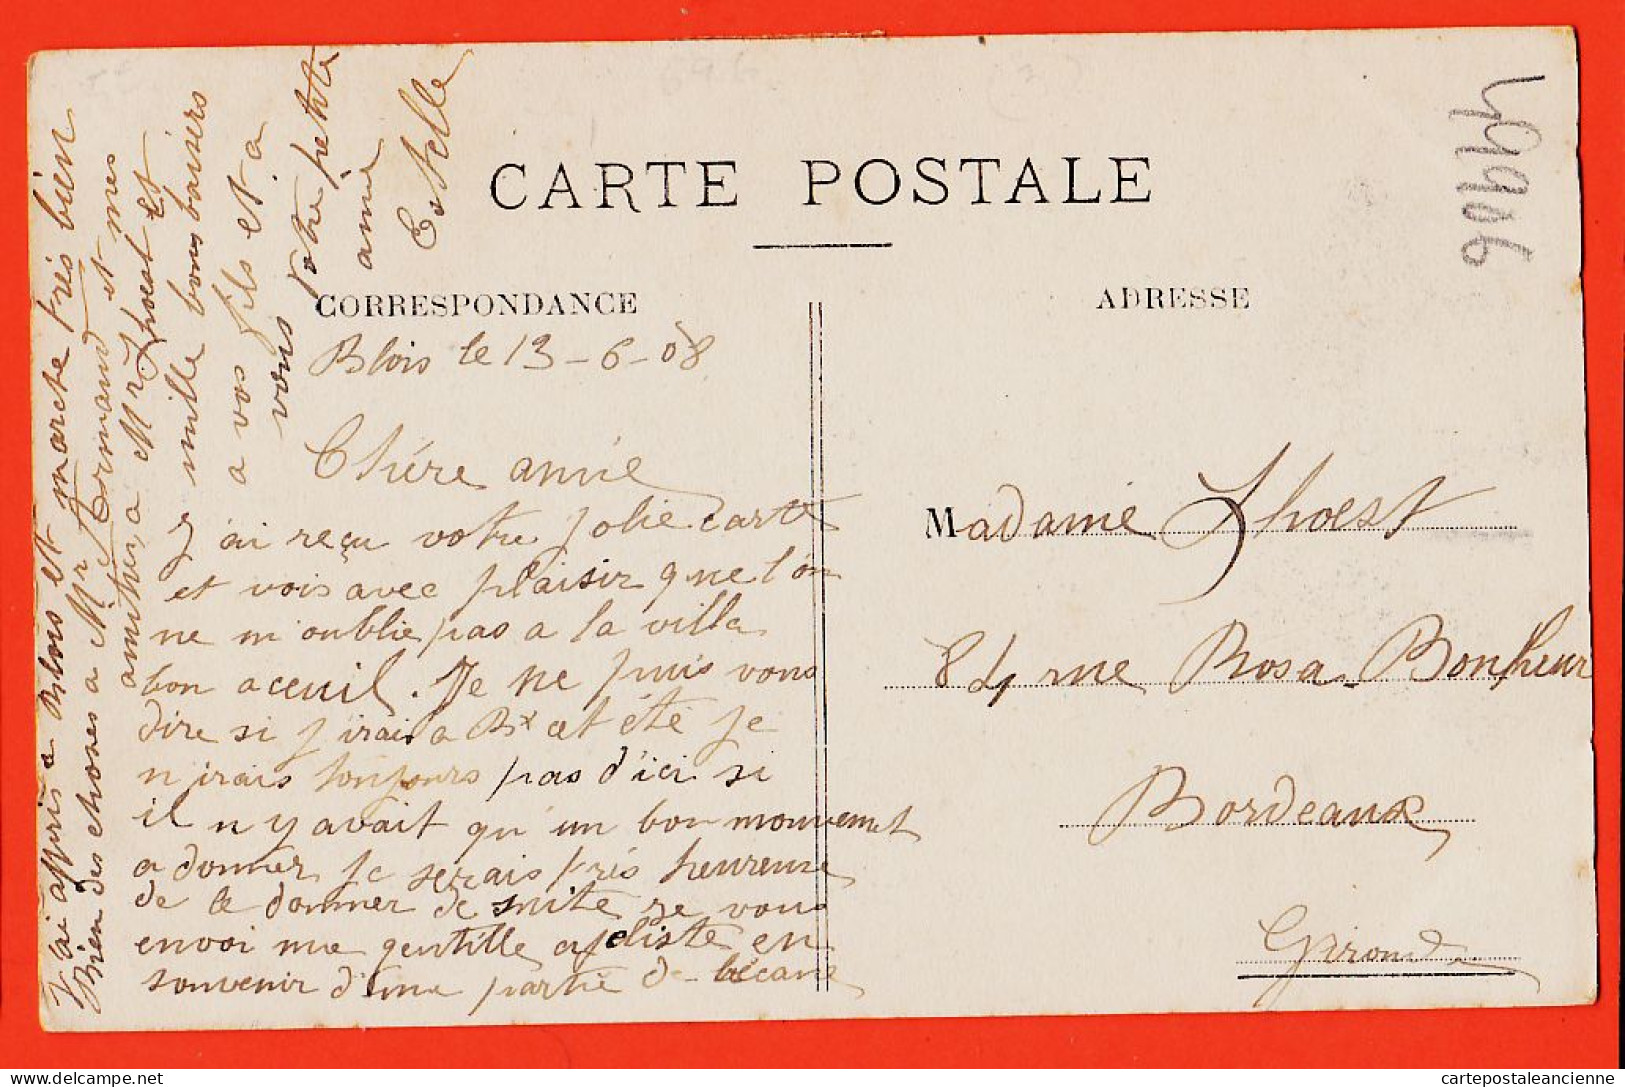 CARTE POSTALE
CORRESPONDANCE
ADRESSE
49906
Blois le 13-6-08
Chére amie
J'ai reçu votre jolie carte
et vois avec plaisir que l'on
ne m'oublie pas a la villa
bon aceuil. Je ne puis vous
dire si j'irai a Bx cet été je
n'irais toujours pas d'ici si
il n'y avait qu'un bon mouvement
a donner je serais trés heureuse
de le donner de suite je vous
envoi une gentille cycliste en
souvenir d'une partie de bécane
J'ai appris a Blois et marche trés bien
Bien des choses a Mr Armand et mes
amitiés a Mr Lhoest Et
mille bons baisers
a vos fils et a
vous
Votre petite
amie
Estelle
Madame Lhoest
84 rue Rosa-Bonheur
Bordeaux
Gironde
cartepostaleancienne.com